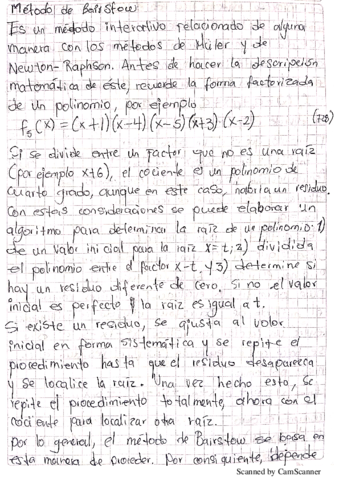 Método de Bairstow
Es un método interactivo relacionado de alguna
manera con los métodos de Müler y de
Newton-Raphson. Antes de hacer la descripción
matemática de éste, recuerde la forma factorizada
de un polinomio, por ejemplo
f₅(x) = (x+1)(x-4)(x-5)(x+3)(x-2)
Si se divide entre un factor que no es una raíz
(por ejemplo x+6), el cociente es un polinomio de
cuarto grado, aunque en este caso, habría un residuo.
Con estas consideraciones se puede elaborar un
algoritmo para determinar la raíz de un polinomio: 1)
de un valor inicial para la raíz x=t; 2) dividida
el polinomio entre el factor x-t, y 3) determine si
hay un residuo diferente de cero. Si no el valor
inicial es perfecto y la raíz es igual a t.
Si existe un residuo, se ajusta al valor
inicial en forma sistemática y se repite el
procedimiento hasta que el residuo desaparezca
y se localice la raíz. Una vez hecho esto, se
repite el procedimiento totalmente, ahora con el
cociente para localizar otra raíz.
Por lo general, el método de Bairstow se basa en
esta manera de proceder. Por consiguiente, depende
Scanned by CamScanner